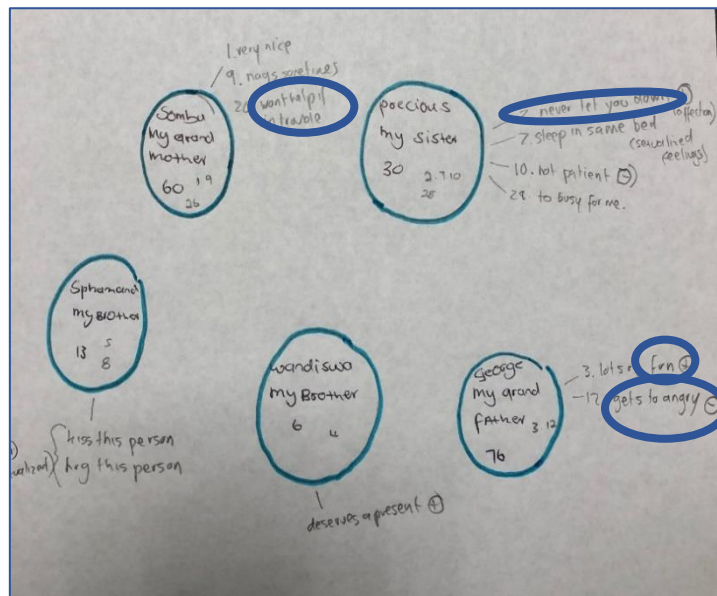 1. very nice
9. nags sometimes
want help if
in trouble
Sombu
my grand
mother
60 1 9
26
precious
my sister
30 2.7.10
28
never let you down
7. sleep in same bed
(sexualized
feelings)
10. not patient ⊖
28 to busy for me.
Sphamand
my BrOther
13 5
8
kiss this person
hug this person
wandiswa
my Brother
6 4
deserves a present ⊕
George
my grand
fAther 3 12
76
3. lots fun ⊕
12 gets to angry ⊖